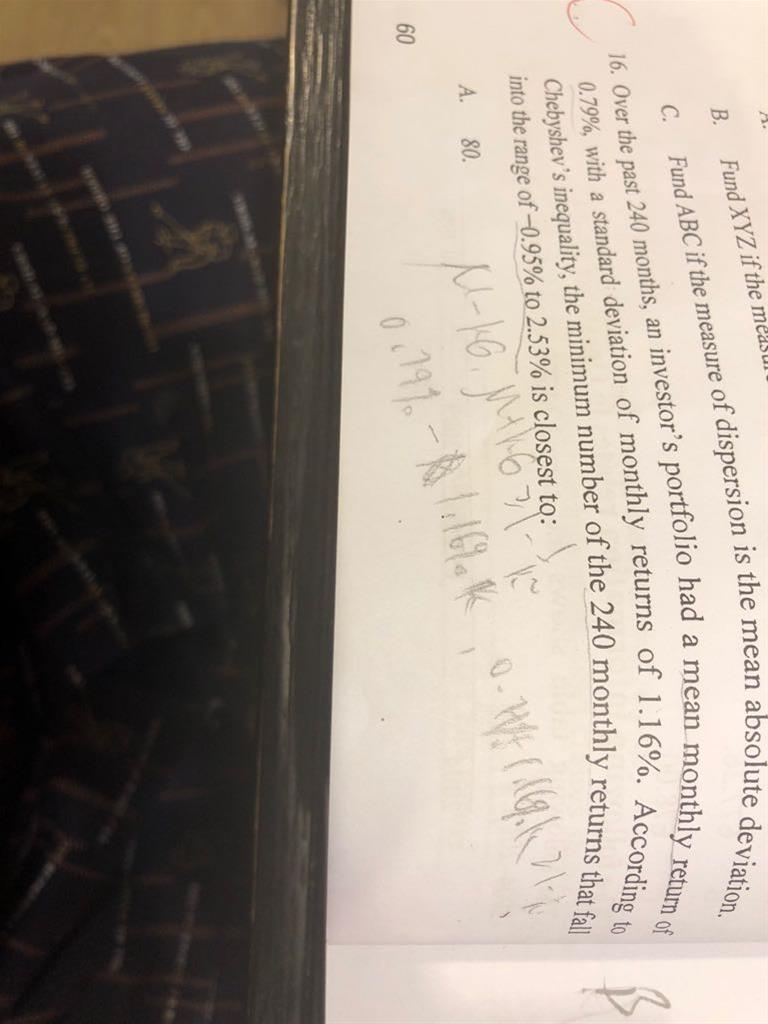 A.
B. Fund XYZ if the measure
C. Fund ABC if the measure of dispersion is the mean absolute deviation.
16. Over the past 240 months, an investor's portfolio had a mean monthly return of
0.79%, with a standard deviation of monthly returns of 1.16%. According to
Chebyshev's inequality, the minimum number of the 240 monthly returns that fall
into the range of –0.95% to 2.53% is closest to:
A. 80.
0.79% - 1.16% k,
60
B